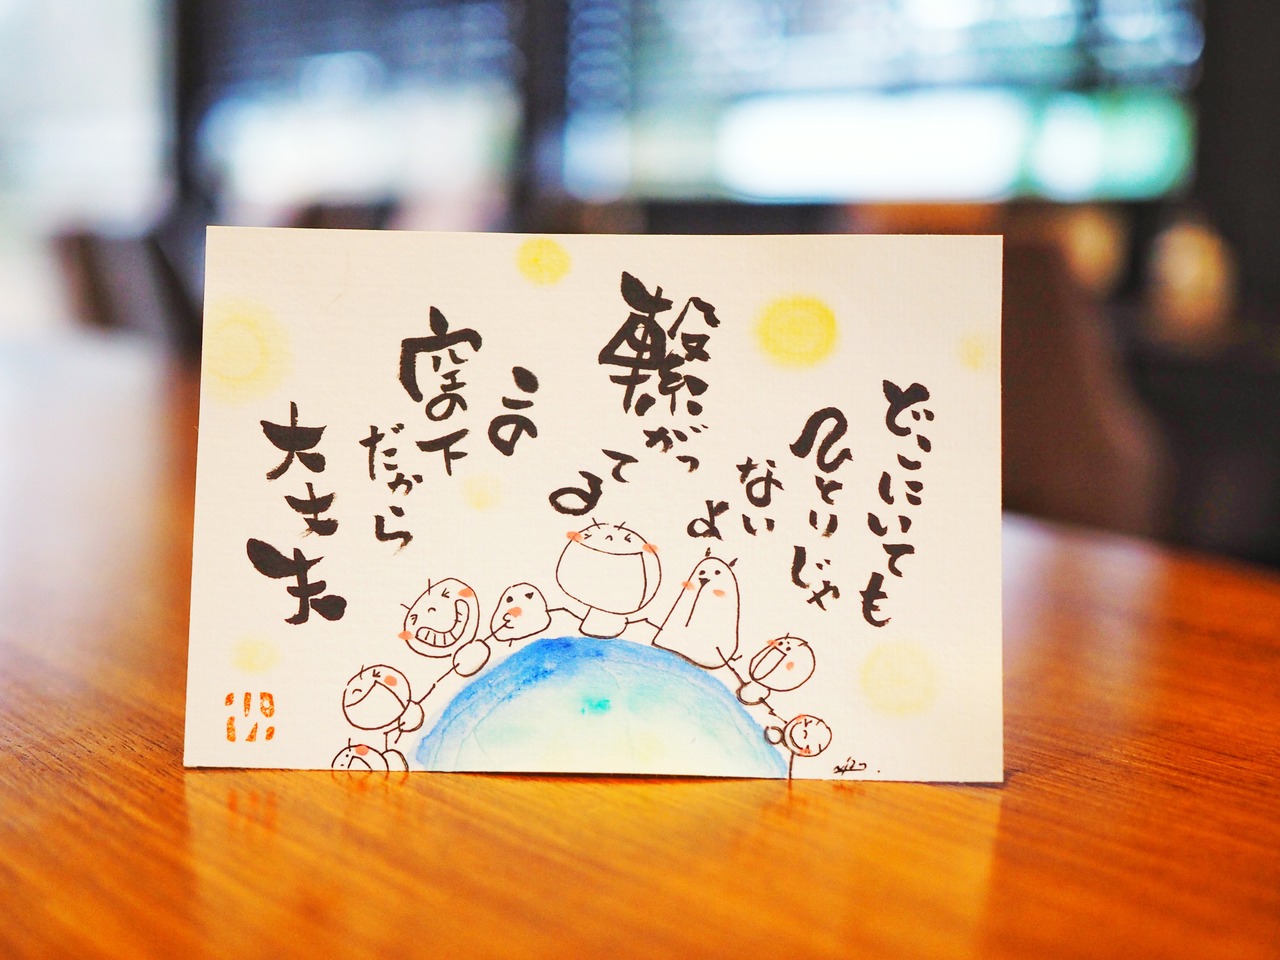 どこにいても
ひとりじゃ
ない
よ
繋がっ
てる
この
空の下
だから
大丈夫